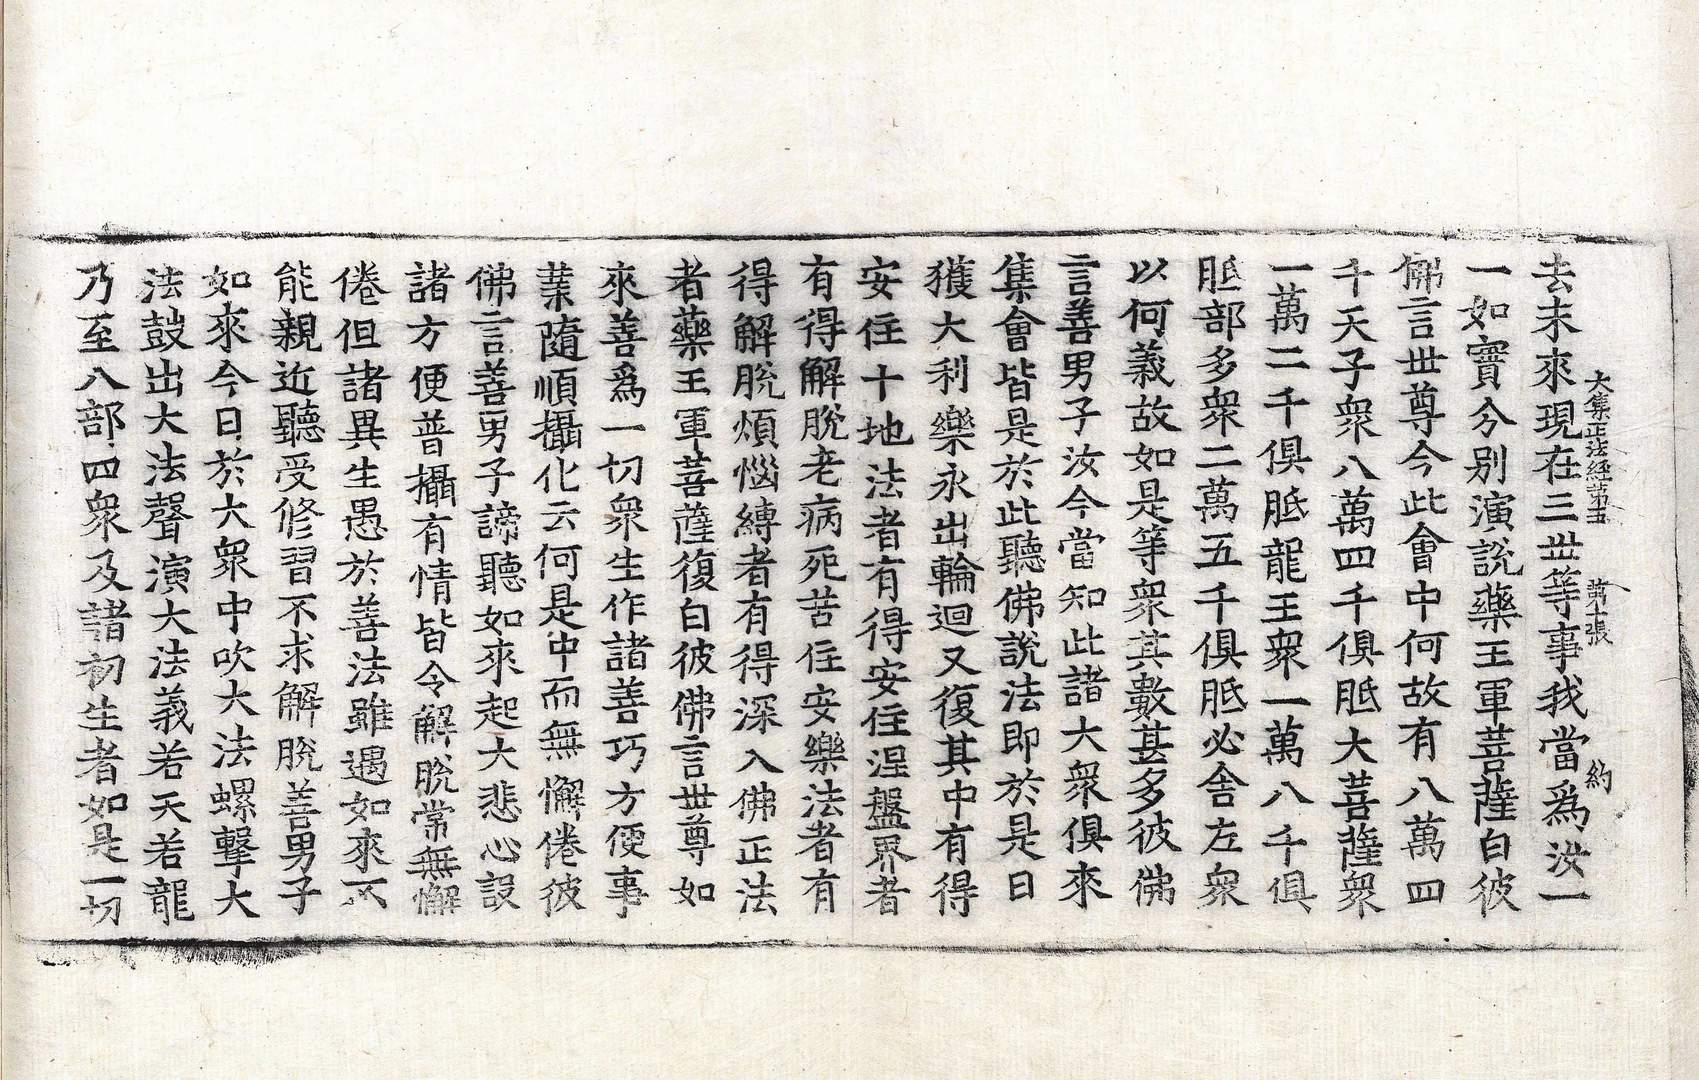 大集正法經苐五　苐十張　約
去未來現在三世等事我當爲汝一
一如實分別演說藥王軍菩薩白彼
佛言世尊今此會中何故有八萬四
千天子衆八萬四千俱胝大菩薩衆
一萬二千俱胝龍王衆一萬八千俱
胝部多衆二萬五千俱胝必舍左衆
以何義故如是等衆其數甚多彼佛
言善男子汝今當知此諸大衆俱來
集會皆是於此聽佛說法即於是日
獲大利樂永出輪迴又復其中有得
安住十地法者有得安住涅盤界者
有得解脫老病死苦住安樂法者有
得解脫煩惱縛者有得深入佛正法
者藥王軍菩薩復白彼佛言世尊如
來善爲一切衆生作諸善巧方便事
業隨順攝化云何是中而無懈倦彼
佛言善男子諦聽如來起大悲心設
諸方便普攝有情皆令解脫常無懈
倦但諸異生愚於善法雖遇如來不
能親近聽受修習不求解脫善男子
如來今日於大衆中吹大法螺擊大
法鼓出大法聲演大法義若天若龍
乃至八部四衆及諸初生者如是一切